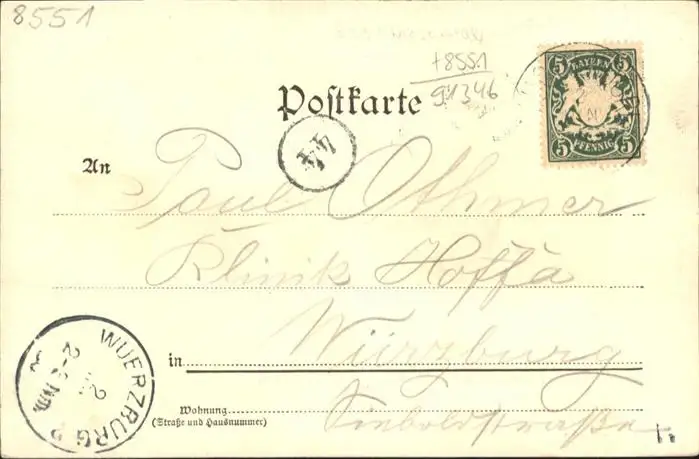 8551
+8551
91346
Postkarte
5 BAYERN 5
5 PFENNIG 5
44
An Paul Othmer
Klinik Hoffa
in Würzburg
Wohnung Sieboldstraße
(Straße und Hausnummer)
WUERZBURG 2
2-3 Nm.